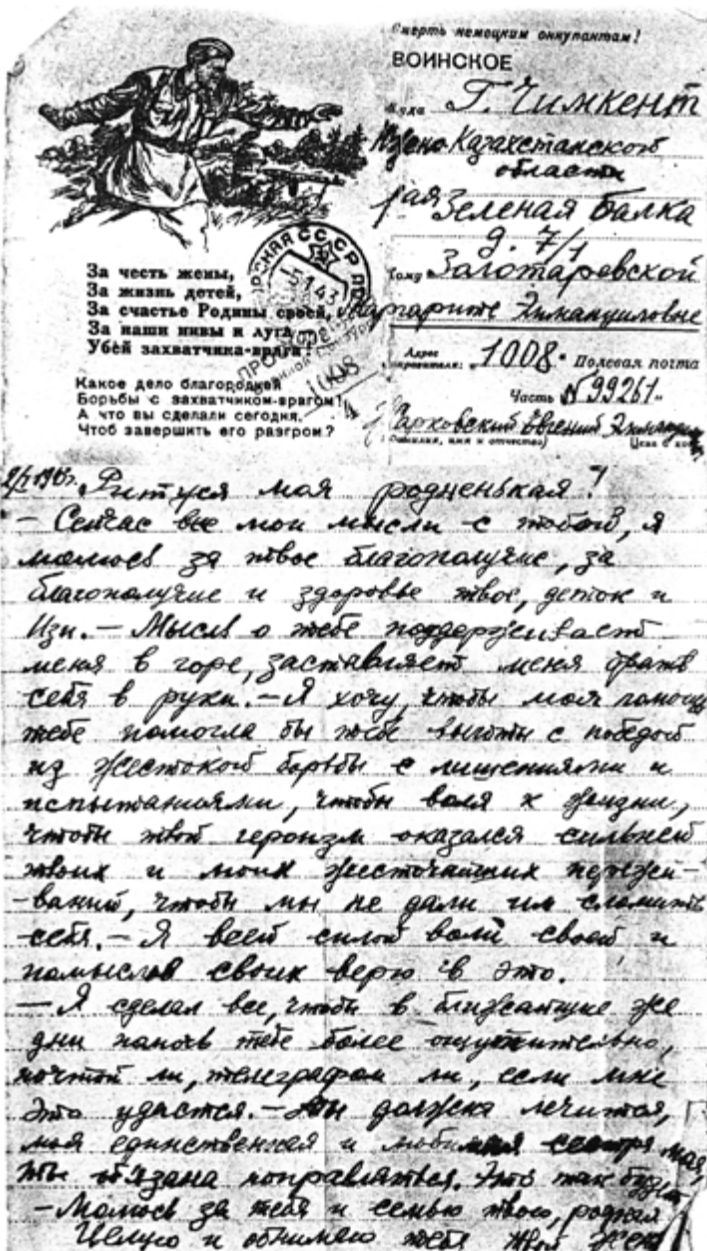 Смерть немецким оккупантам!
ВОИНСКОЕ
Куда Г. Чимкент
Южно-Казахстанской
области
Зеленая Балка
д. 7/1
Кому Золотаревской
Маргарите Эммануиловне
Адрес
отправителя: 1008. Полевая почта
Часть № 99261
Евгений
(Фамилия, имя и отчество)
За честь жены,
За жизнь детей,
За счастье Родины своей,
За наши нивы и луга
Убей захватчика-врага!
Какое дело благородней
Борьбы с захватчиком-врагом!
А что вы сделали сегодня,
Чтоб завершить его разгром?
1008
4
Ритуся моя родненькая!
– Сейчас все мои мысли с тобой, я
молюсь за твое благополучие, за
благополучие и здоровье твое, деток и
Изи. – Мысль о тебе поддерживает
меня в горе, заставляет меня брать
себя в руки. – Я хочу, чтобы моя помощь
тебе помогла бы тебе выйти с победой
из жестокой борьбы с лишениями и
испытаниями, чтобы воля к жизни,
чтобы твой героизм оказался сильней
твоих и моих жесточайших пережи-
-ваний, чтобы мы не дали им сломить
себя. – Я всей силой воли своей и
помыслов своих верю в это.
– Я сделал все, чтобы в ближайшие же
дни помочь тебе более ощутительно,
почтой ли, телеграфом ли, если мне
это удастся. – Ты должна лечиться,
моя единственная и любимая сестра моя,
ты обязана поправляться. Это так будет
– Молюсь за тебя и семью твою, родная
Целую и обнимаю тебя твой Женя